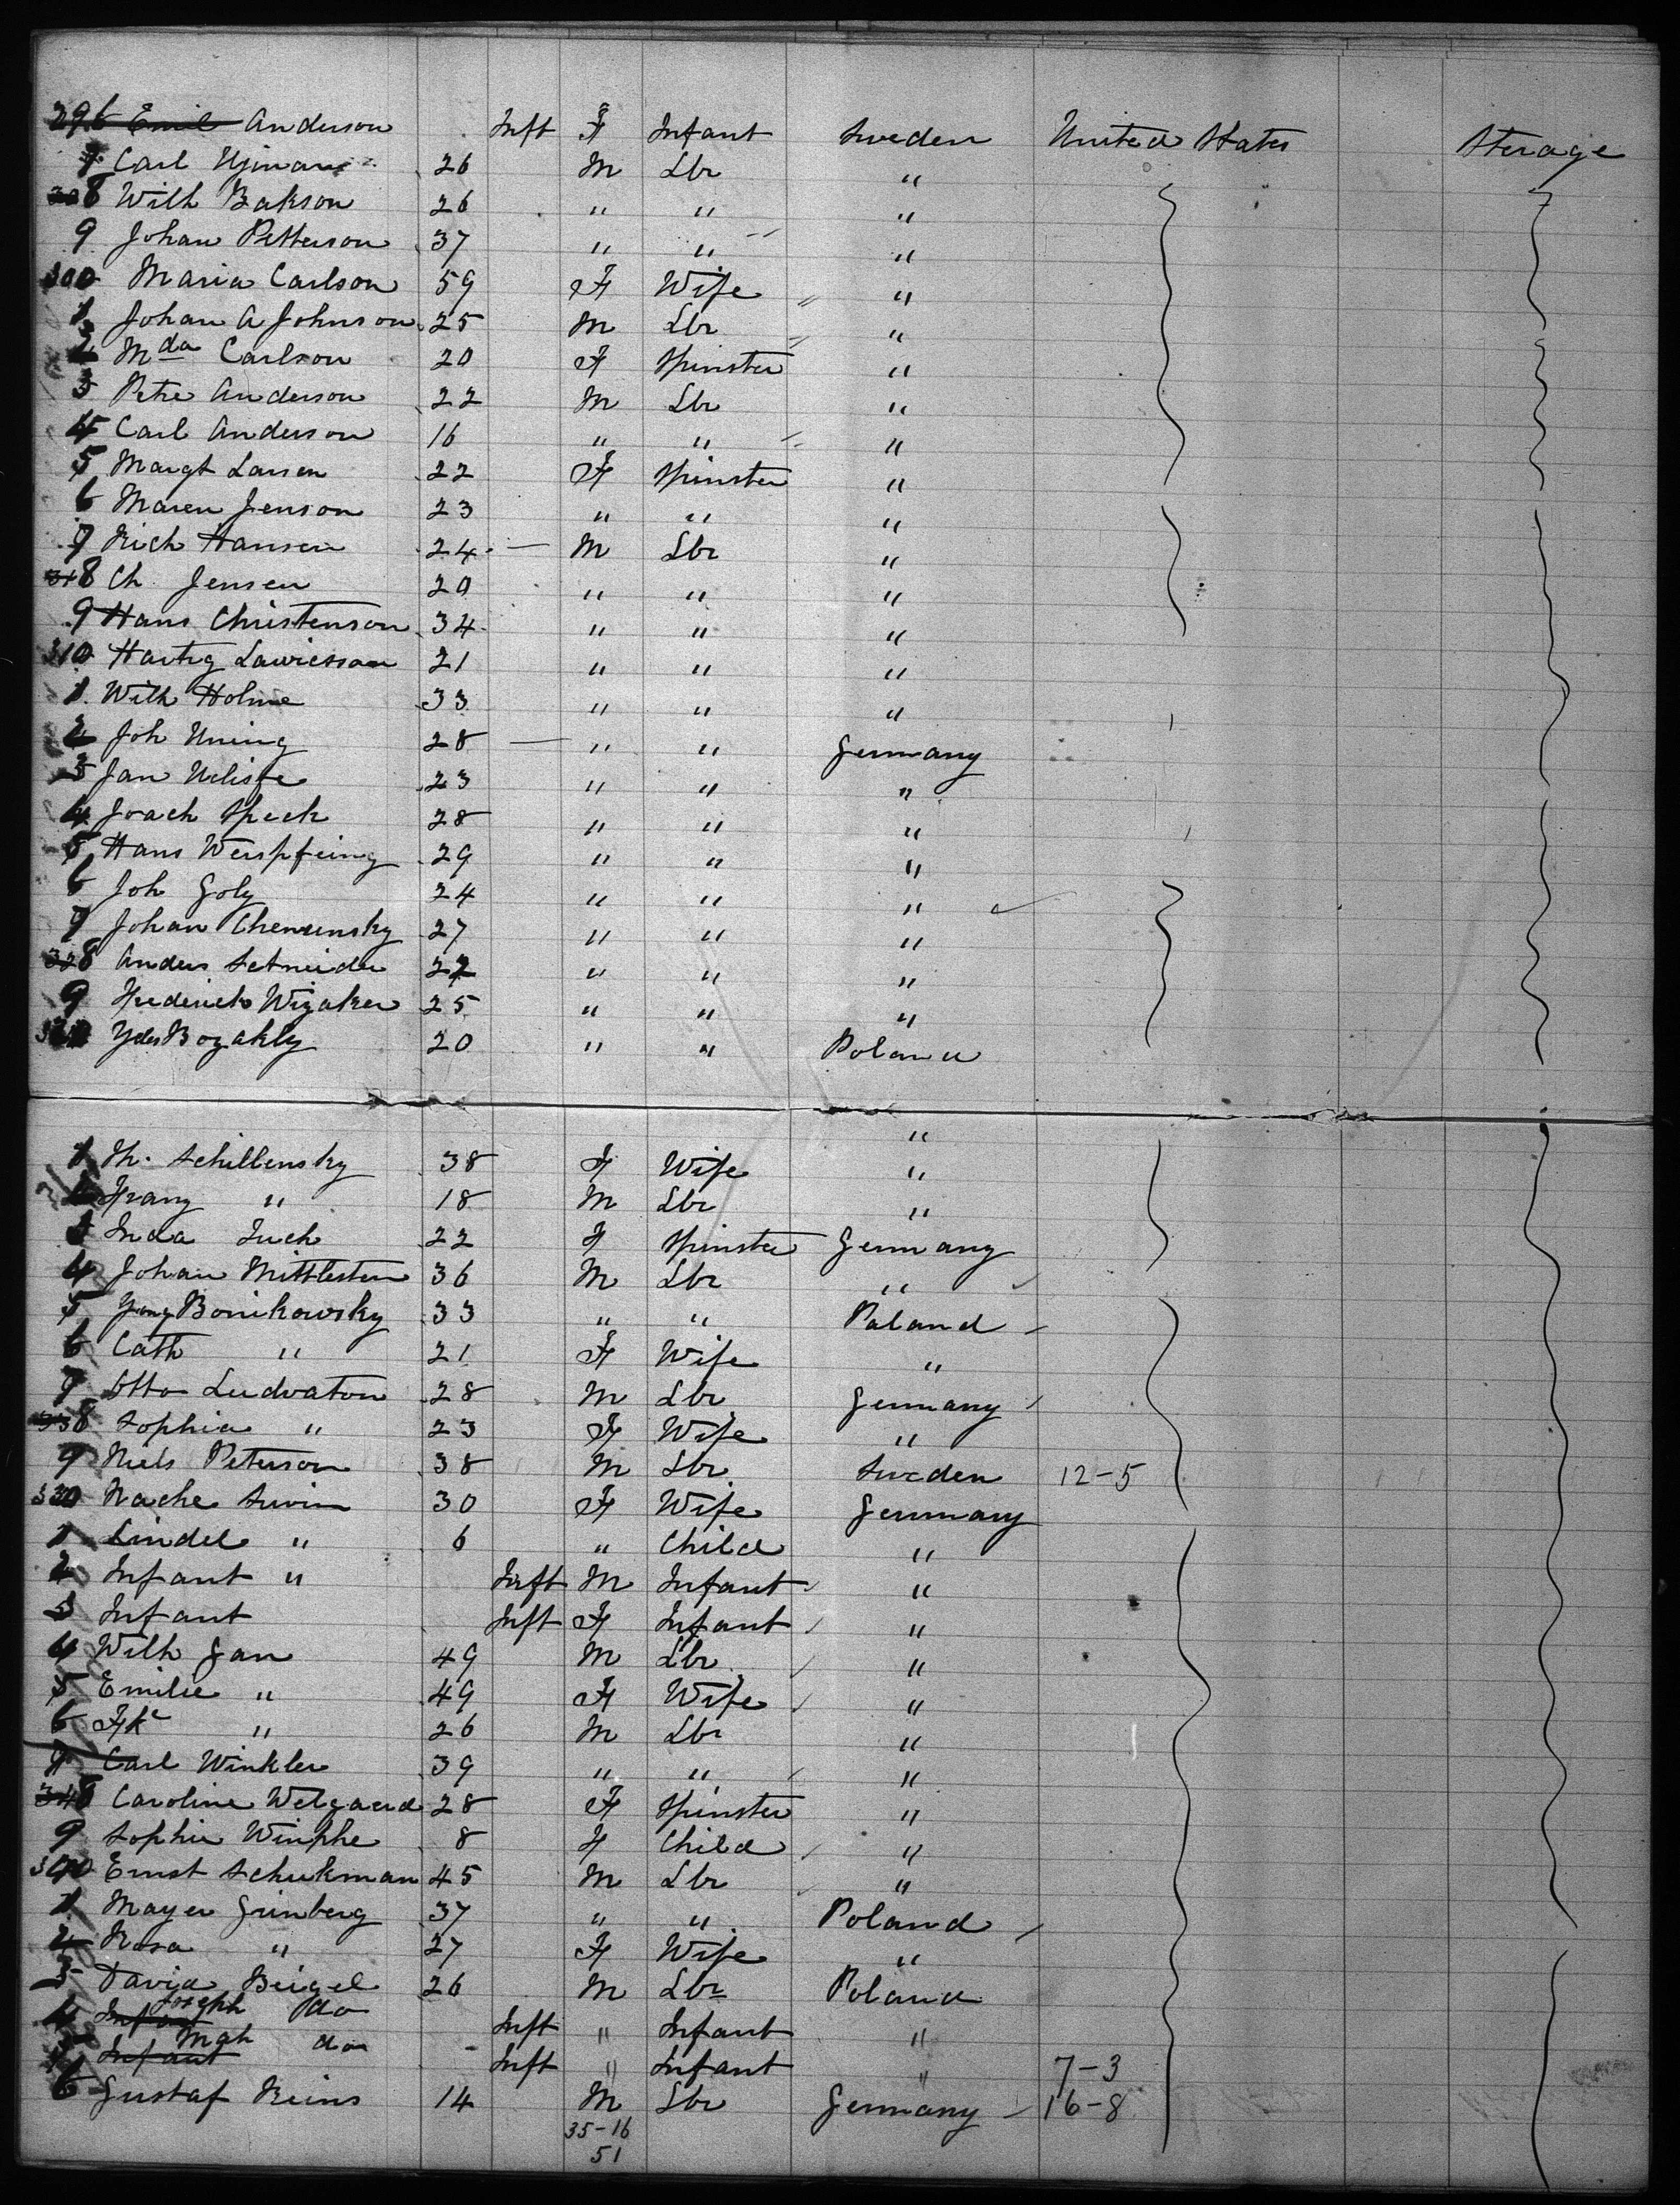 296 Emil Anderson Inft F Infant Sweden United States Sterage
7 Carl 26 M Lbr "
8 Wilh Bakson 26 " " "
9 Johan Petterson 37 " " "
300 Maria Carlson 59 F Wife "
1 Johan A Johnson 25 M Lbr "
2 Mda Carlson 20 F Spinster "
3 Petre Anderson 22 M Lbr "
4 Carl Anderson 16 " " "
5 Margt Larsen 22 F Spinster "
6 Maren Jenson 23 " " "
7 Nich Hansen 24 M Lbr "
8 Ch Jensen 20 " " "
9 Hans Christenson 34 " " "
310 Hartig 21 " " "
1 Wilh Holme 33 " " "
2 Joh Uning 28 " " Germany
3 Jan 23 " " "
4 Joach Speck 28 " " "
5 Hans Werspfeing 29 " " "
6 Joh Goly 24 " " "
7 Johan 27 " " "
328 Anders Schneider 22 " " "
9 Frederick Wizaker 25 " " "
Bozakly 20 " " Poland
"
1 Th. Schillensky 38 F Wife "
Franz " 18 M Lbr "
3 Inda Tuch 22 F Spinster Germany
4 Johan Mittlesten 36 M Lbr "
5 Bonikowsky 33 " " Poland
6 Cath " 21 F Wife "
7 Otto Ludvaton 28 M Lbr Germany
338 Sophia " 23 F Wife "
9 Niels Peterson 38 M Lbr Sweden 12-5
330 Nache 30 F Wife Germany
1 Lindel " 6 " Child "
2 Infant " Inft M Infant "
3 Infant Inft F Infant "
4 Wilh Jan 49 M Lbr "
5 Emilie " 49 F Wife "
6 Fk " 26 M Lbr "
7 Carl Winkler 39 " " "
348 Caroline Welgaard 28 F Spinster "
9 Sophie Winkhe 8 F Child "
340 Ernst Schukman 45 M Lbr "
1 Mayer Grinberg 37 " " Poland
2 Rosa " 27 F Wife "
3 David Beigel 26 M Lbr Poland
4 Infant Joseph do Inft " Infant "
5 Infant do Inft " Infant " 7-3
6 Gustaf Reins 14 M Lbr Germany 16-8
35-16
51